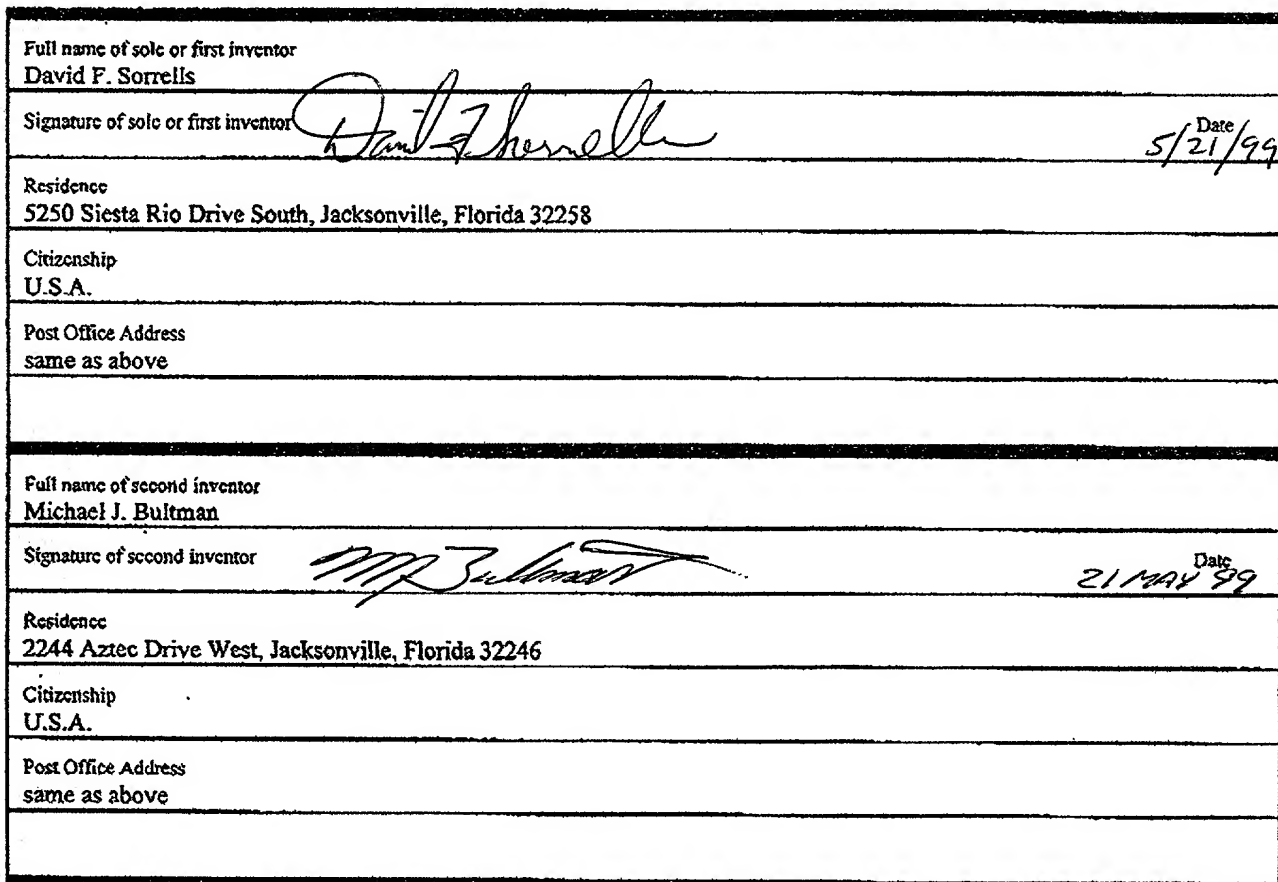 Full name of sole or first inventor
David F. Sorrells
Signature of sole or first inventor David F Sorrells
Date
5/21/99
Residence
5250 Siesta Rio Drive South, Jacksonville, Florida 32258
Citizenship
U.S.A.
Post Office Address
same as above
Full name of second inventor
Michael J. Bultman
Signature of second inventor MJ Bultman
Date
21 MAY 99
Residence
2244 Aztec Drive West, Jacksonville, Florida 32246
Citizenship
U.S.A.
Post Office Address
same as above